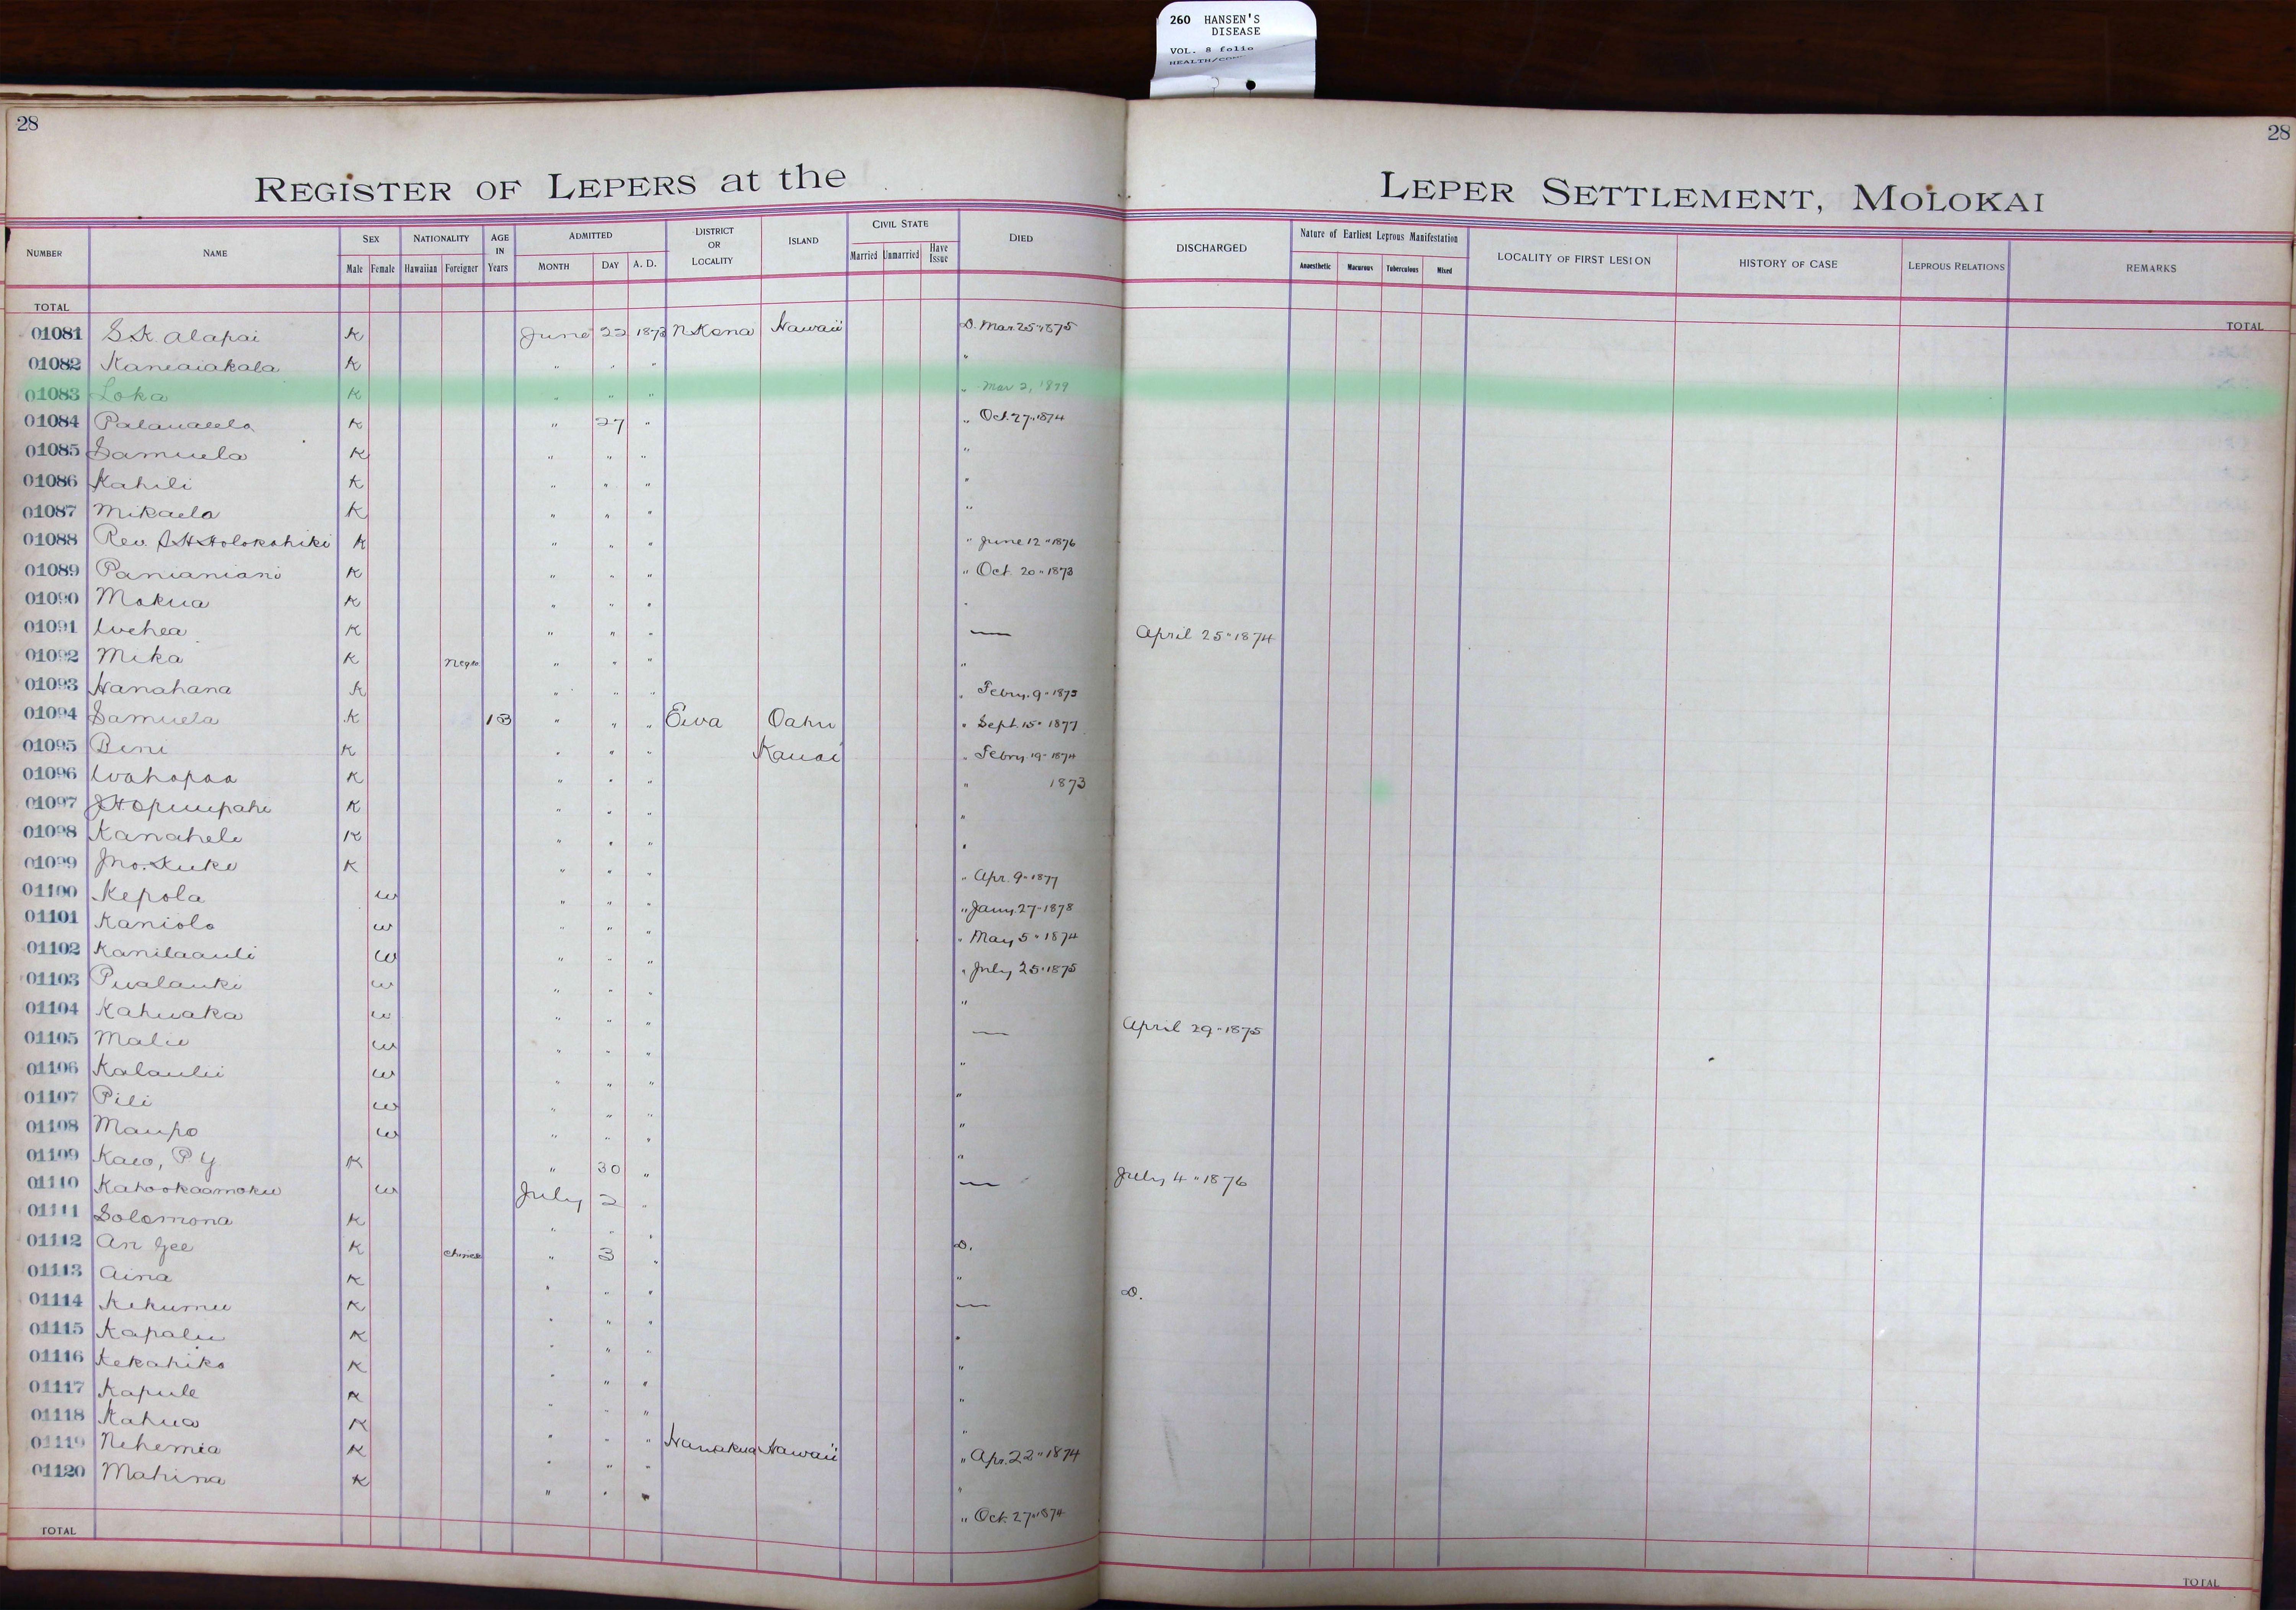 260 HANSEN'S
DISEASE
VOL. 8 folio
28
28
REGISTER OF LEPERS at the LEPER SETTLEMENT, MOLOKAI
NUMBER NAME SEX NATIONALITY AGE IN Years ADMITTED DISTRICT OR LOCALITY ISLAND CIVIL STATE DIED DISCHARGED Nature of Earliest Leprous Manifestation LOCALITY OF FIRST LESION HISTORY OF CASE LEPROUS RELATIONS REMARKS
Male Female Hawaiian Foreigner MONTH DAY A. D. Married Unmarried Have Issue Anaesthetic Macurous Tuberculous Mixed
TOTAL TOTAL
01081 S.K. Alapai K June 22 1873 N Kona Hawaii D. Mar. 25 " 1875
01082 Kaneaiakala K " " " "
01083 Loka K " " " " Mar 2, 1879
01084 K " 27 " " Oct. 27 " 1874
01085 Samuela K " " " "
01086 Kahili K " " " "
01087 Mikaela K " " " "
01088 Rev. Holokahiki K " " " " June 12 " 1876
01089 Panianiani K " " " " Oct. 20 " 1873
01090 Mokua K " " " "
01091 K " " " — April 25 " 1874
01092 Mika K Negro " " " "
01093 Hanahana K " " " " Febry. 9 "
01094 Samuela K 13 " " " Ewa Oahu " Sept. 15 " 1877
01095 Beni K " " " Kauai " Febry 19 " 1874
01096 Wahapaa K " " " " 1873
01097 K " " " "
01098 Kanahele K " " " "
01099 Jno. Kuke K " " " " Apr. 9 " 1877
01100 Kepola w " " " " Jany. 27 " 1878
01101 Kaniolo w " " " " May 5 " 1874
01102 Kanilaauli w " " " " July 25 " 1875
01103 Pualauki w " " " "
01104 Kahuaka w " " " — April 29 " 1875
01105 Malie w " " " "
01106 Kalaulii w " " " "
01107 Pili w " " " "
01108 Maupo w " " " "
01109 Kaeo, P Y K " 30 " — July 4 " 1876
01110 Kahookaamoku w July 2 "
01111 Solomona K " " " D.
01112 An Gee K Chinese " 3 " "
01113 Aina K " " " — D.
01114 Kekumu K " " " "
01115 Kapalu K " " " "
01116 Kekahiko K " " " "
01117 Kapule K " " " "
01118 Kahua K " " " Hamakua Hawaii " Apr. 22 " 1874
01119 Nehemia K " " " "
01120 Mahina K " " " " Oct. 27 " 1874
TOTAL TOTAL